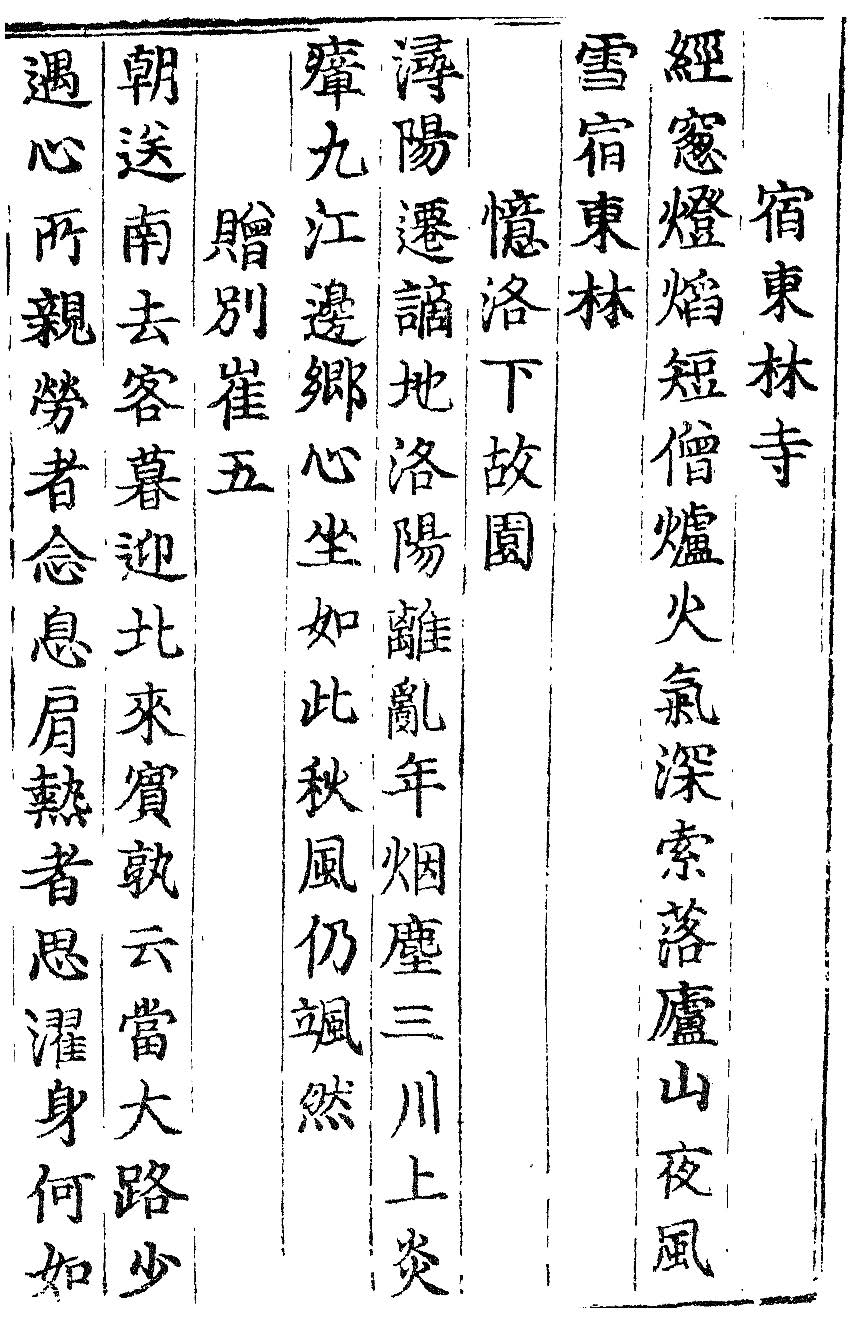 宿東林寺
經窻燈焰短僧爐火氣深索落廬山夜風
雪宿東林
憶洛下故園
潯陽遷謫地洛陽離亂年烟塵三川上炎
瘴九江邊鄉心坐如此秋風仍颯然
贈別崔五
朝送南去客暮迎北來賓孰云當大路少
遇心所親勞者念息肩熱者思濯身何如